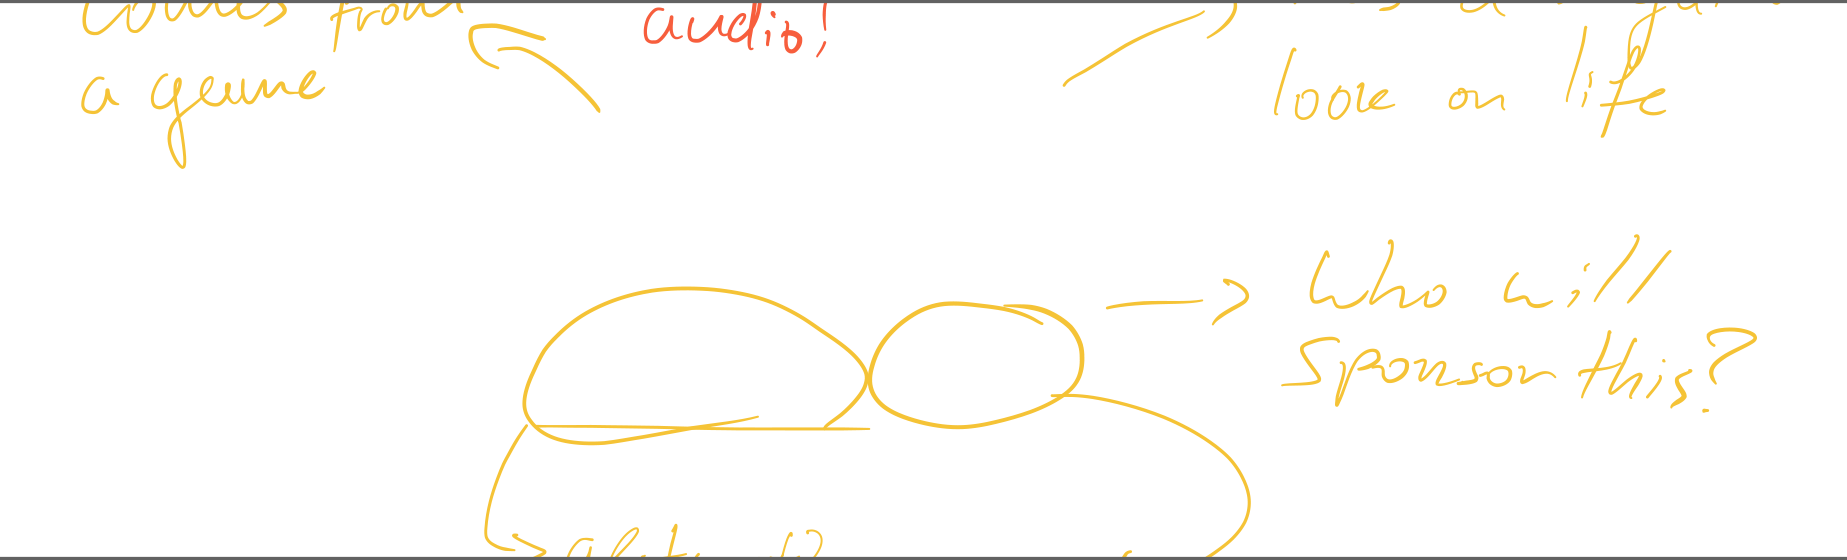 comes from
a genre
audio!
look on life
Who will
sponsor this?